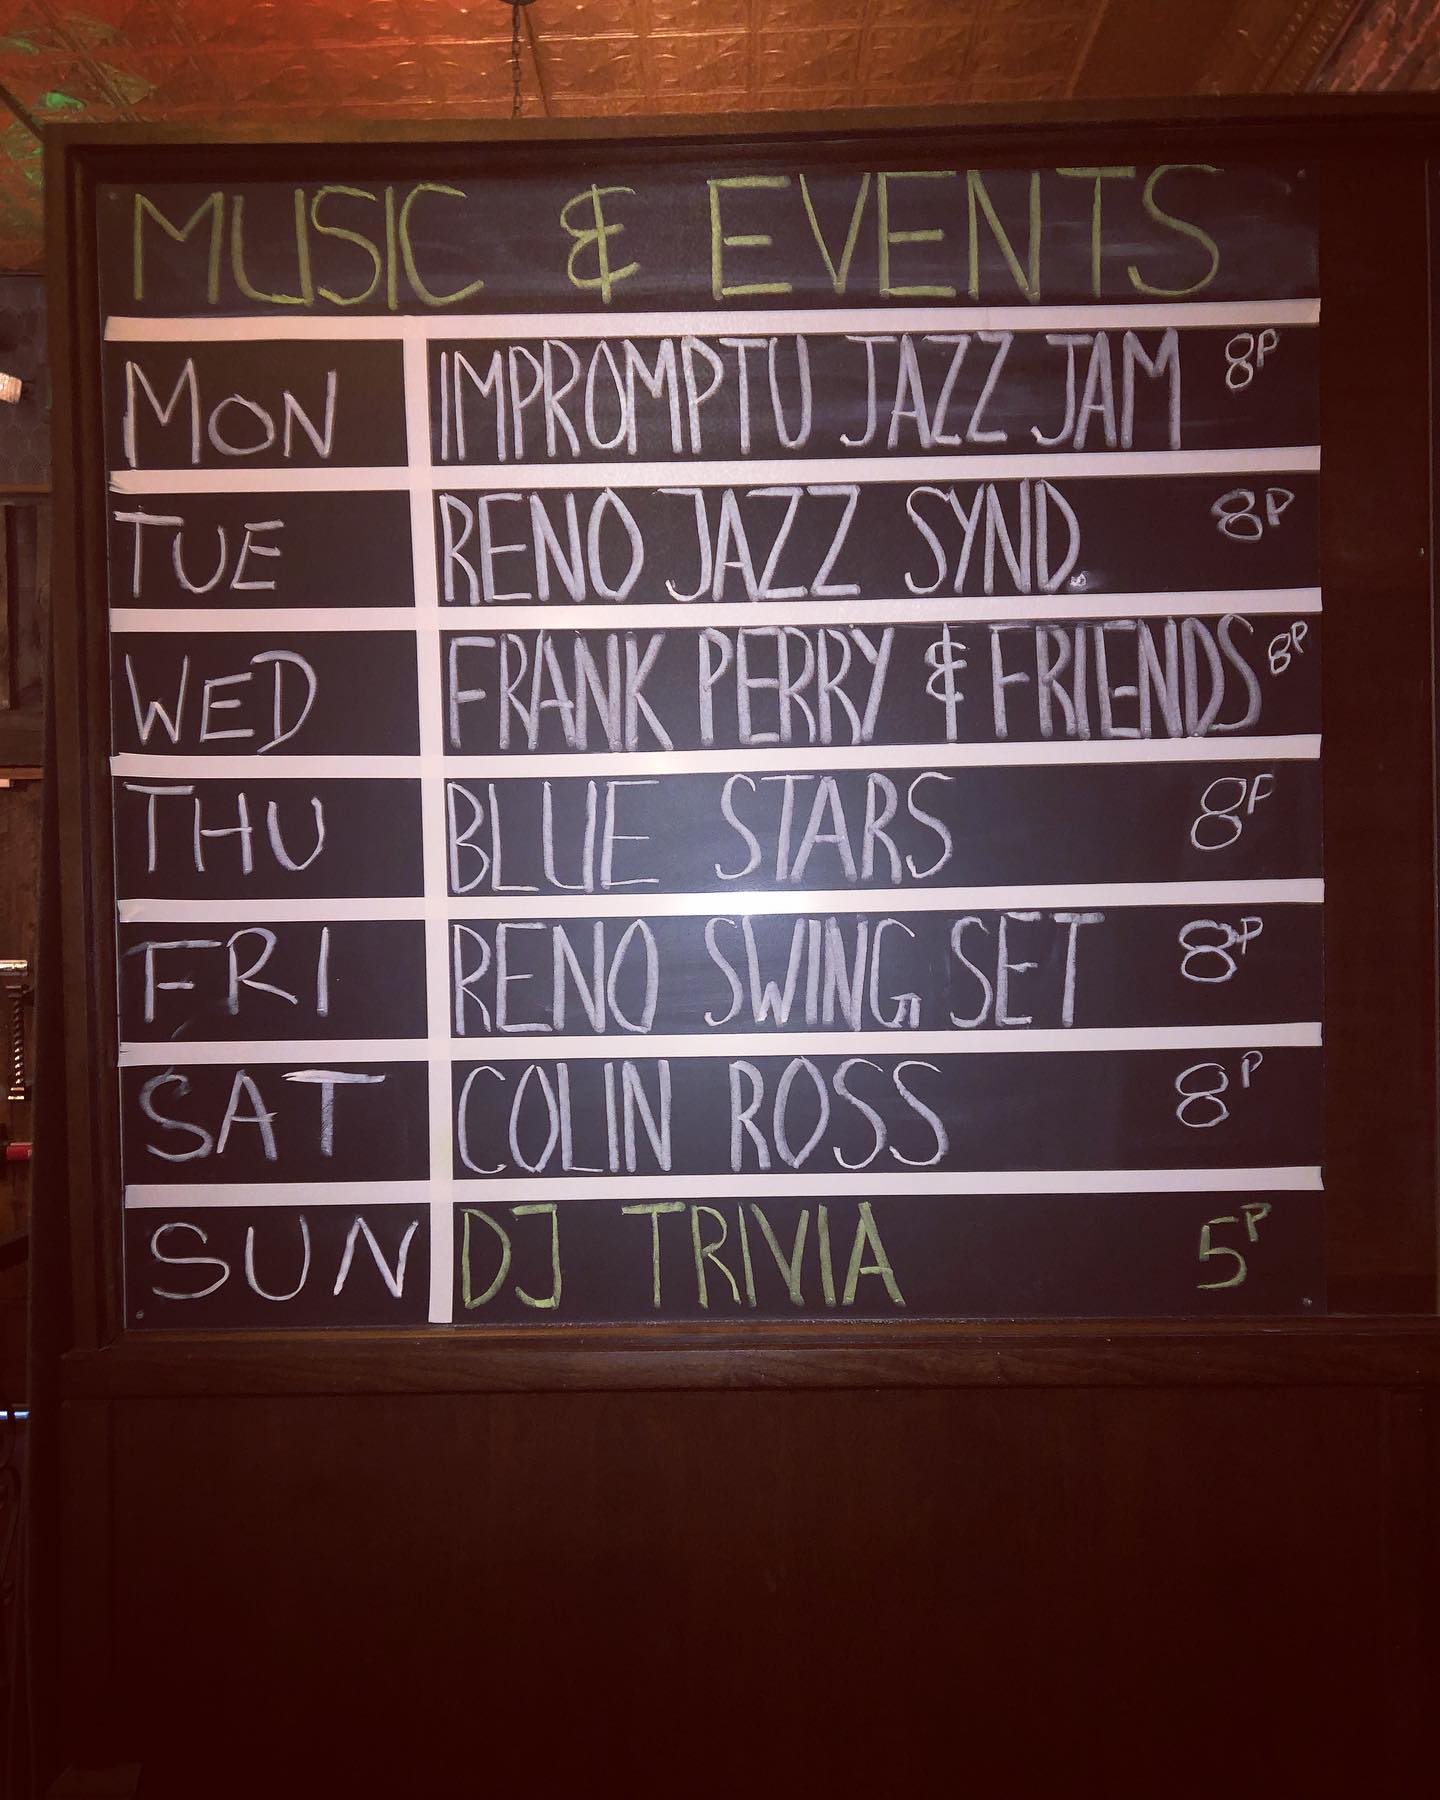 MUSIC & EVENTS
MON IMPROMPTU JAZZ JAM 8P
TUE RENO JAZZ SYND. 8P
WED FRANK PERRY & FRIENDS 8P
THU BLUE STARS 8P
FRI RENO SWING SET 8P
SAT COLIN ROSS 8P
SUN DJ TRIVIA 5P